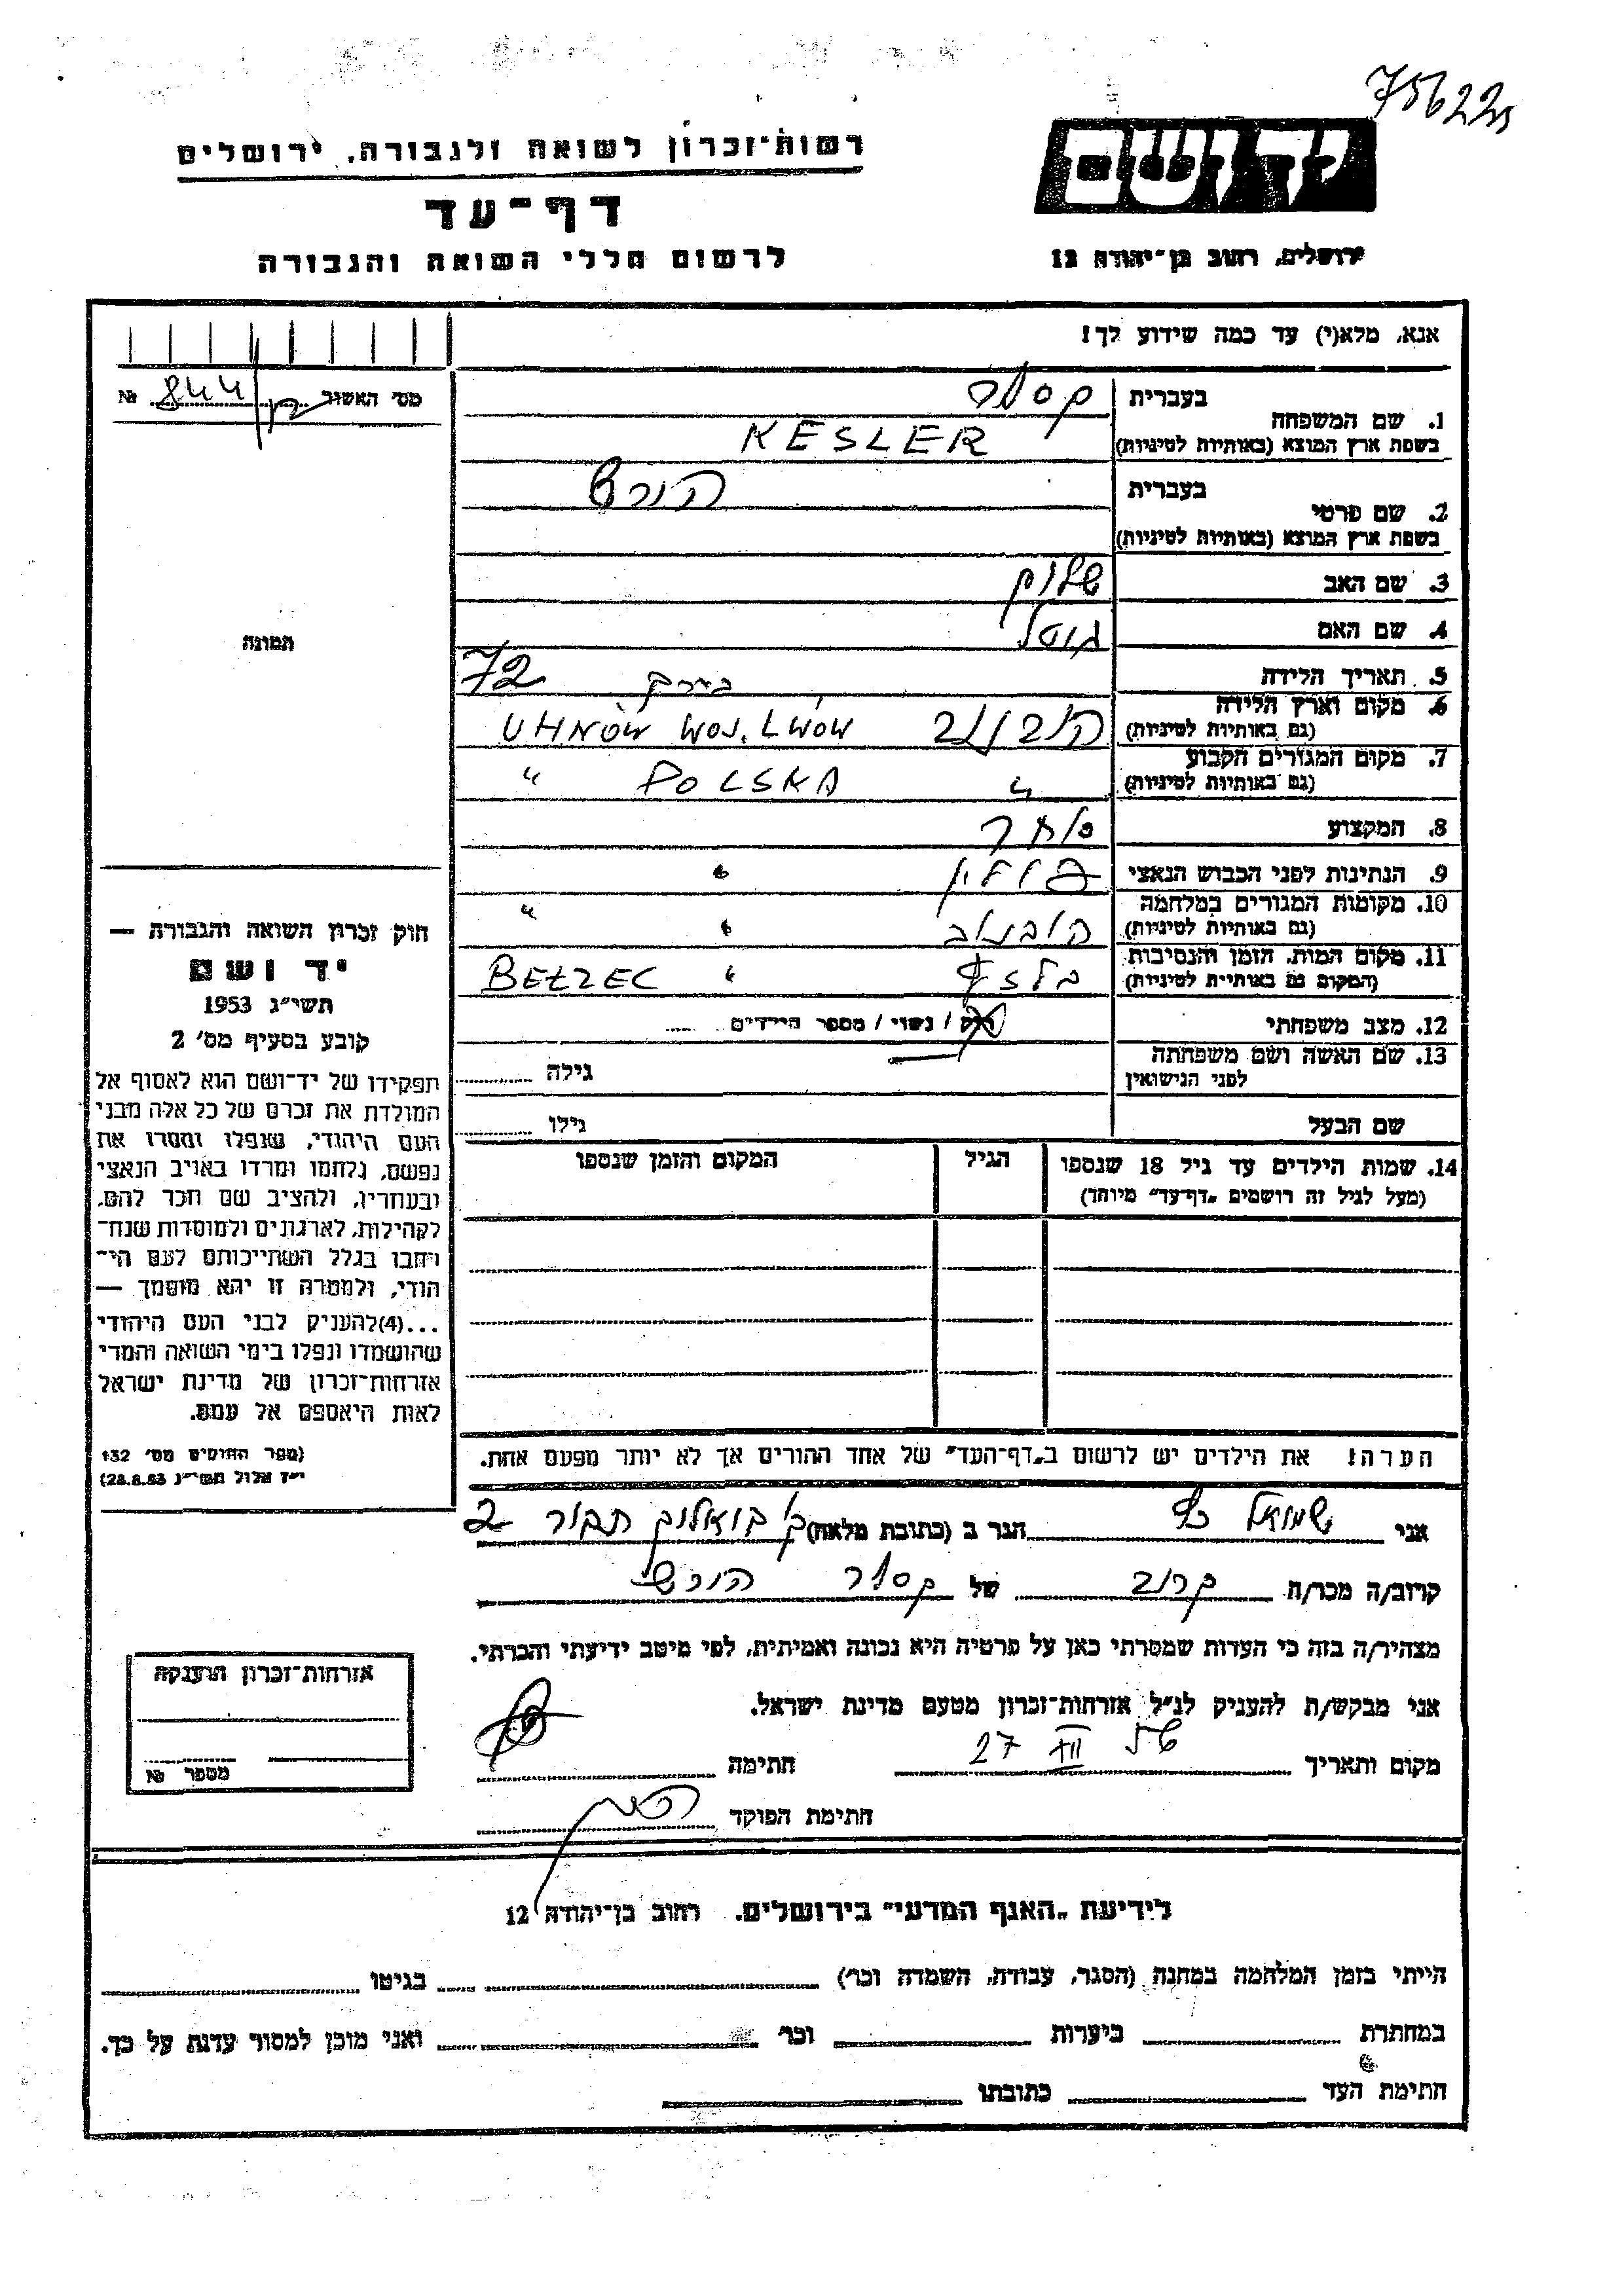 756225
יד ושם
רשות-זכרון לשואה ולגבורה, ירושלים
דף-עד
ירושלים, רחוב בן-יהודה 12
לרשום חללי השואה והגבורה
אנא, מלא(י) עד כמה שידוע לך!
מס' האשור 844 №
1. שם המשפחה
בעברית קסלר
בשפת ארץ המוצא (באותיות לטיניות) KESLER
2. שם פרטי
בעברית
בשפת ארץ המוצא (באותיות לטיניות)
3. שם האב שלום
4. שם האם גוטל
5. תאריך הלידה בערך 72
6. מקום וארץ הלידה
(גם באותיות לטיניות) UHNÓW WOJ. LWÓW
7. מקום המגורים הקבוע
(גם באותיות לטיניות) " POLSKA "
8. המקצוע סוחר
9. הנתינות לפני הכבוש הנאצי פולין
10. מקומות המגורים במלחמה
(גם באותיות לטיניות) "
11. מקום המות, הזמן והנסיבות
(המקום גם באותיות לטיניות) " BEŁZEC
12. מצב משפחתי רווק / נשוי / מספר הילדים
13. שם האשה ושם משפחתה
לפני הנישואין
גילה
שם הבעל גילו
14. שמות הילדים עד גיל 18 שנספו
(מעל לגיל זה רושמים „דף-עד" מיוחד)
הגיל
המקום והזמן שנספו
הערה! את הילדים יש לרשום ב„דף-העד" של אחד ההורים אך לא יותר מפעם אחת.
תמונה
חוק זכרון השואה והגבורה —
יד ושם
תשי"ג 1953
קובע בסעיף מס' 2
תפקידו של יד-ושם הוא לאסוף אל
המולדת את זכרם של כל אלה מבני
העם היהודי, שנפלו ומסרו את
נפשם, נלחמו ומרדו באויב הנאצי
ובעוזריו, ולהציב שם וזכר להם,
לקהילות, לארגונים ולמוסדות שנח-
רבו בגלל השתייכותם לעם הי-
הודי, ולמטרה זו יהא מוסמך —
...(4)להעניק לבני העם היהודי
שהושמדו ונפלו בימי השואה והמרי
אזרחות-זכרון של מדינת ישראל
לאות היאספם אל עמם.
(ספר החוקים מס' 132
י"ז אלול תשי"ג 28.8.53)
אני שמואל הגר ב (כתובת מלאה) תבור 2
קרוב/ה מכר/ה קרוב של קסלר
מצהיר/ה בזה כי העדות שמסרתי כאן על פרטיה היא נכונה ואמיתית, לפי מיטב ידיעתי והכרתי.
אני מבקש/ת להעניק לנ"ל אזרחות-זכרון מטעם מדינת ישראל.
מקום ותאריך 27 חתימה
חתימת הפוקד
אזרחות-זכרון הוענקה
מספר №
לידיעת „האגף המדעי" בירושלים. רחוב בן-יהודה 12
הייתי בזמן המלחמה במחנה (הסגר, עבודה, השמדה וכו') בגיטו
במחתרת ביערות וכו' ואני מוכן למסור עדות על כך.
חתימת העד כתובתו